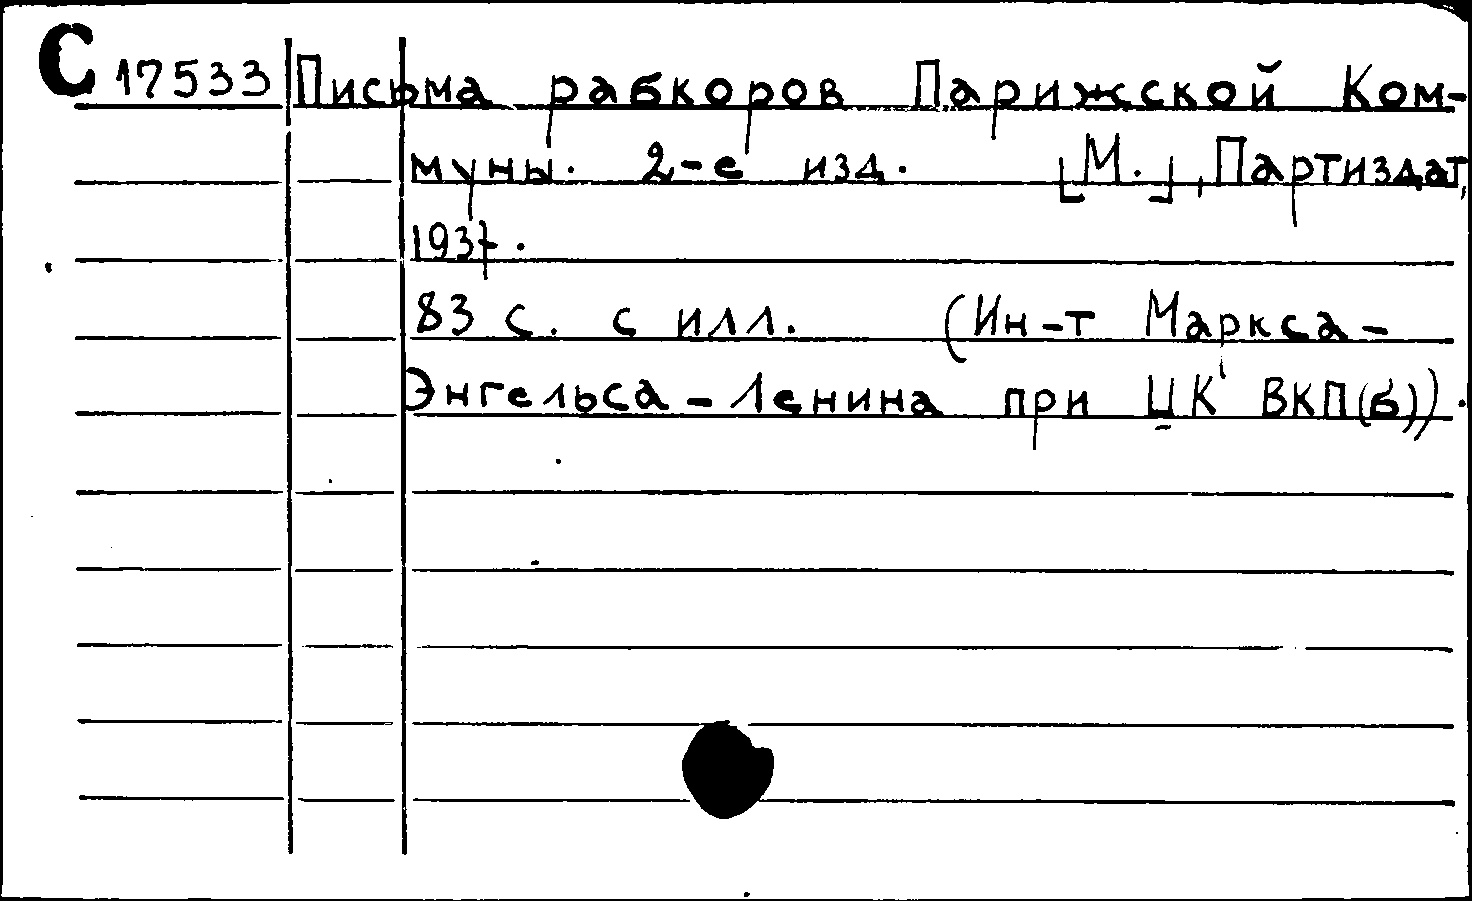 С 17533 Письма рабкоров Парижской Ком-
муны. 2-е изд. [М.], Партиздат,
1937.
83 с. с илл. (Ин-т Маркса-
Энгельса-Ленина при ЦК ВКП(б)).